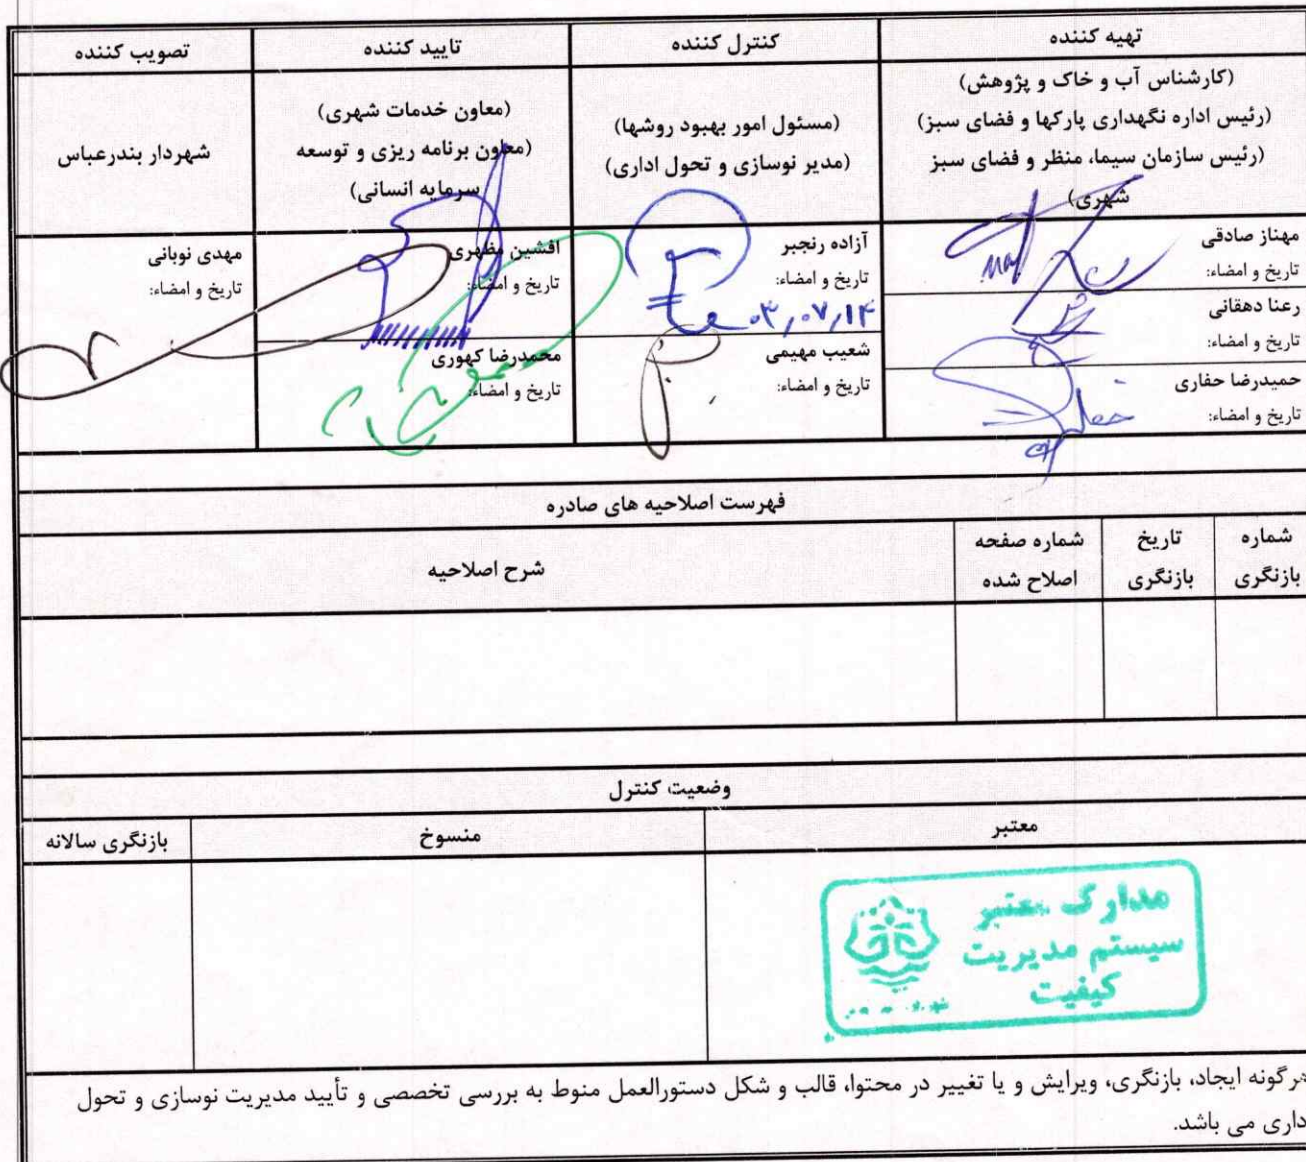 تهیه کننده
کنترل کننده
تایید کننده
تصویب کننده
(کارشناس آب و خاک و پژوهش)
(رئیس اداره نگهداری پارکها و فضای سبز)
(رئیس سازمان سیما، منظر و فضای سبز
شهری)
(مسئول امور بهبود روشها)
(مدیر نوسازی و تحول اداری)
(معاون خدمات شهری)
(معاون برنامه ریزی و توسعه
سرمایه انسانی)
شهردار بندرعباس
مهناز صادقی
تاریخ و امضاء:
رعنا دهقانی
تاریخ و امضاء:
حمیدرضا حفاری
تاریخ و امضاء:
آزاده رنجبر
تاریخ و امضاء:
۰۳,۰۷,۱۴
شعیب مهیمی
تاریخ و امضاء:
افشین مظهری
تاریخ و امضاء:
محمدرضا کهوری
تاریخ و امضاء:
مهدی نوبانی
تاریخ و امضاء:
فهرست اصلاحیه های صادره
شماره
بازنگری
تاریخ
بازنگری
شماره صفحه
اصلاح شده
شرح اصلاحیه
وضعیت کنترل
معتبر
منسوخ
بازنگری سالانه
مدارک معتبر
سیستم مدیریت
کیفیت
هرگونه ایجاد، بازنگری، ویرایش و یا تغییر در محتوا، قالب و شکل دستورالعمل منوط به بررسی تخصصی و تأیید مدیریت نوسازی و تحول
داری می باشد.